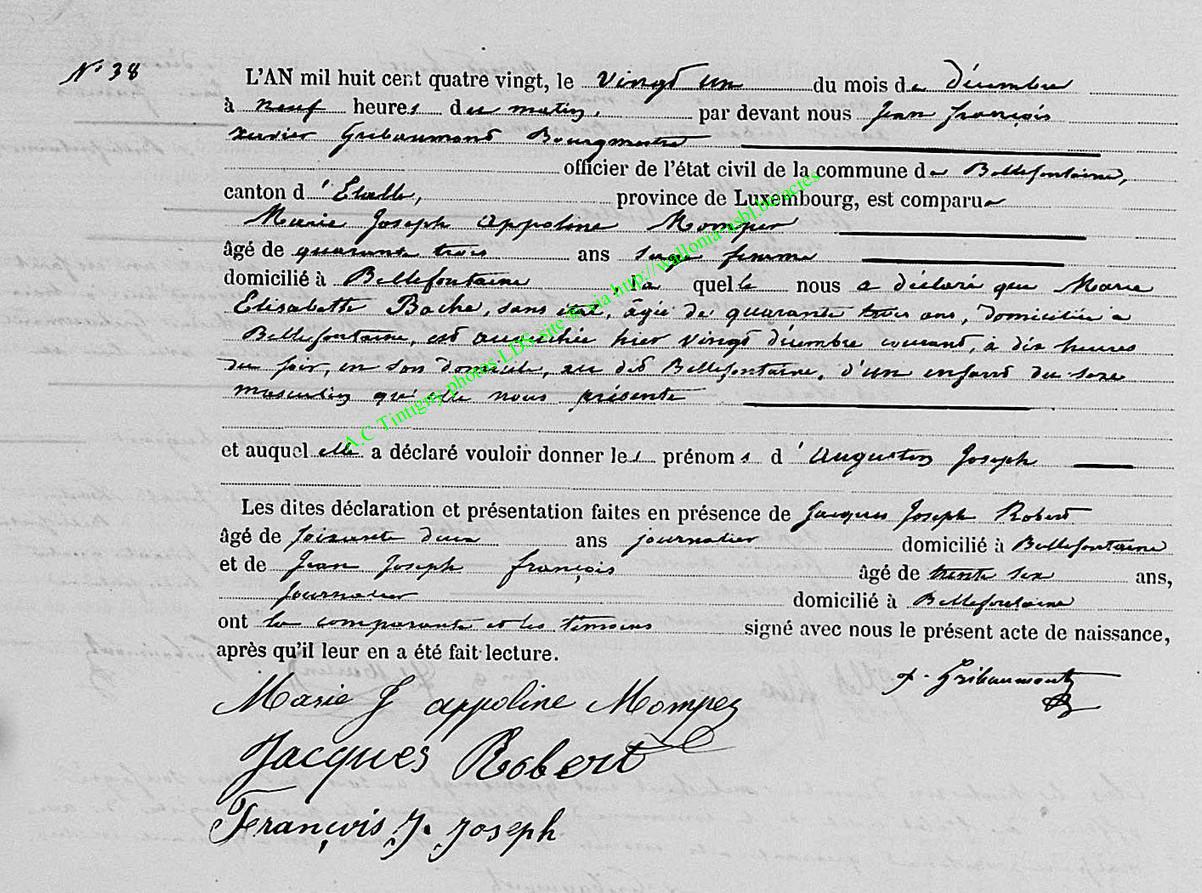 N° 38
L'AN mil huit cent quatre vingt, le vingt un du mois de décembre
à neuf heures du matin, par devant nous Jean françois
xavier Gribaumont Bourgmestre
officier de l'état civil de la commune de Bellefontaine,
canton d'Etalle, province de Luxembourg, est comparue
Marie Joseph appoline Momper
âgé de quarante trois ans sage femme
domicilié à Bellefontaine, la quelle nous a déclaré que Marie
Elisabeth Bache, sans état, âgée de quarante trois ans, domiciliée à
Bellefontaine, est accouchée hier vingt décembre courant, à dix heures
du soir, en son domicile, au dit Bellefontaine, d'un enfant du sexe
masculin qu'elle nous présente
et auquel elle a déclaré vouloir donner les prénoms d'augustin Joseph
Les dites déclaration et présentation faites en présence de Jacques Joseph Robert
âgé de soixante deux ans journalier domicilié à Bellefontaine
et de Jean Joseph françois âgé de trente six ans,
journalier domicilié à Bellefontaine
ont la comparante et les témoins signé avec nous le présent acte de naissance,
après qu'il leur en a été fait lecture.
Gribaumont
Marie J appoline Momper
Jacques Robert
François J. Joseph
A.C Tintigny photos LDS site @ via http://wallonia-asbl.be/actes